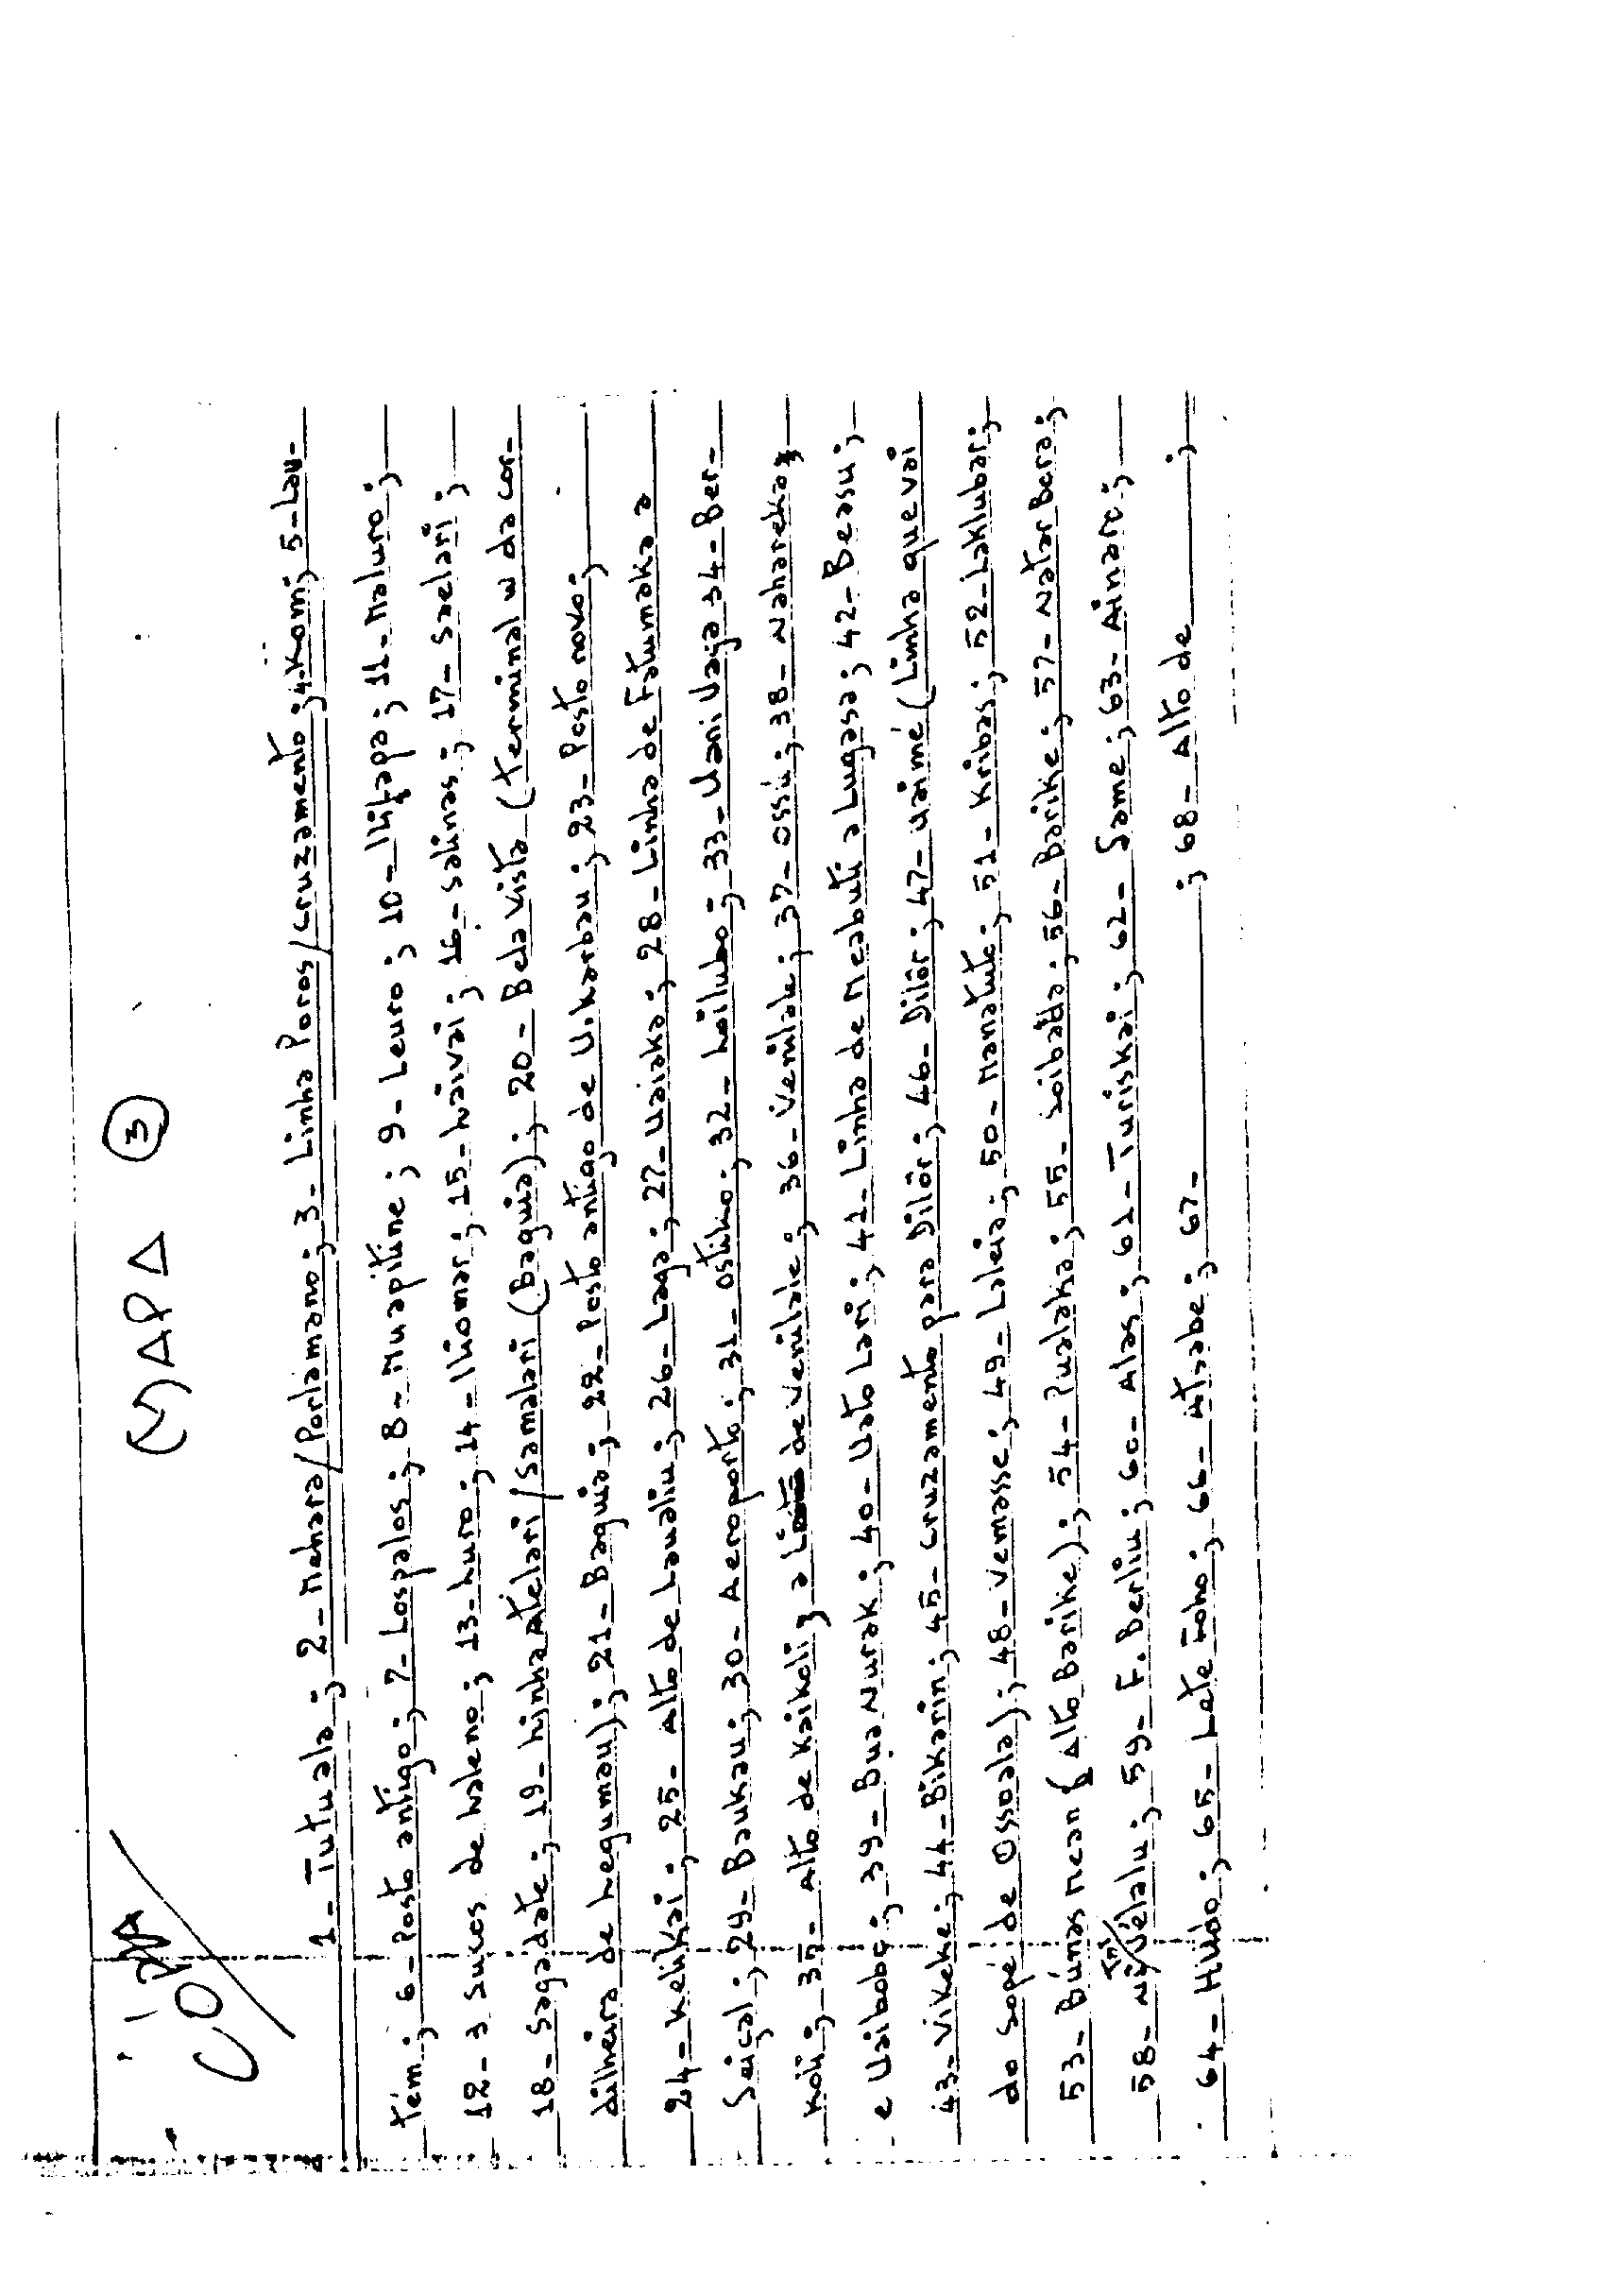 MAPA ③
1- Tutuala; 2- Mehara/Porlamano; 3- Linha Poros/cruzamento; 4-Kom; 5-Lau-
tém; 6-Posto antigo; 7-Lospalos; 8-Muapitine; 9-Leuro; 10-Ililapa; 11-Maluro;
12- 3 sukos de Luleno; 13-Luro; 14-Iliomar; 15-Laivai; 16-Salinas; 17-Saelari;
18-Sagadate; 19-Linha Atelari/Samalari (Baguia); 20- Bela Vista (Terminal W da cor-
dilheira de Legumau); 21-Baguia; 22-Posto antigo de U.Karbau; 23-Posto novo;
24-Kelikai; 25- Alto de Laualiu; 26-Laga; 27-Uaiaka; 28-Linha de Fatumaka a
Seiçal; 29-Baukau; 30-Aeroporto; 31-Ostiko; 32-Loilubo; 33-Uani Uaga 34-Ber-
koli; 35- Alto de Kaikoli, a de Venilale; 36-Venilale; 37-Ossú; 38-Nahareka;
e Uaibobo; 39-Bua Nurak; 40-Uato Lari; 41-Linha de Meabuti a Lugasa; 42-Beasu;
43-Vikeke; 44-Bikarin; 45-cruzamento para Dilôr; 46-Dilôr; 47-Uaimé (Linha que vai
do sopé de Ossoala); 48-Vemasse; 49-Laleia; 50-Manatuto; 51-Kribas; 52-Laklubar;
53-Búnas Mean (Alto Barike); 54-Pualaka; 55-Soibada; 56-Barike; 57-Natar Bora;
58- 59-F. Berliu; 60-Alas; 61-Turiskai; 62-Same; 63-Ainaro;
64-Hildo; 65-Lete Foho; 66-Atsabe; 67- ; 68-Alto de ;